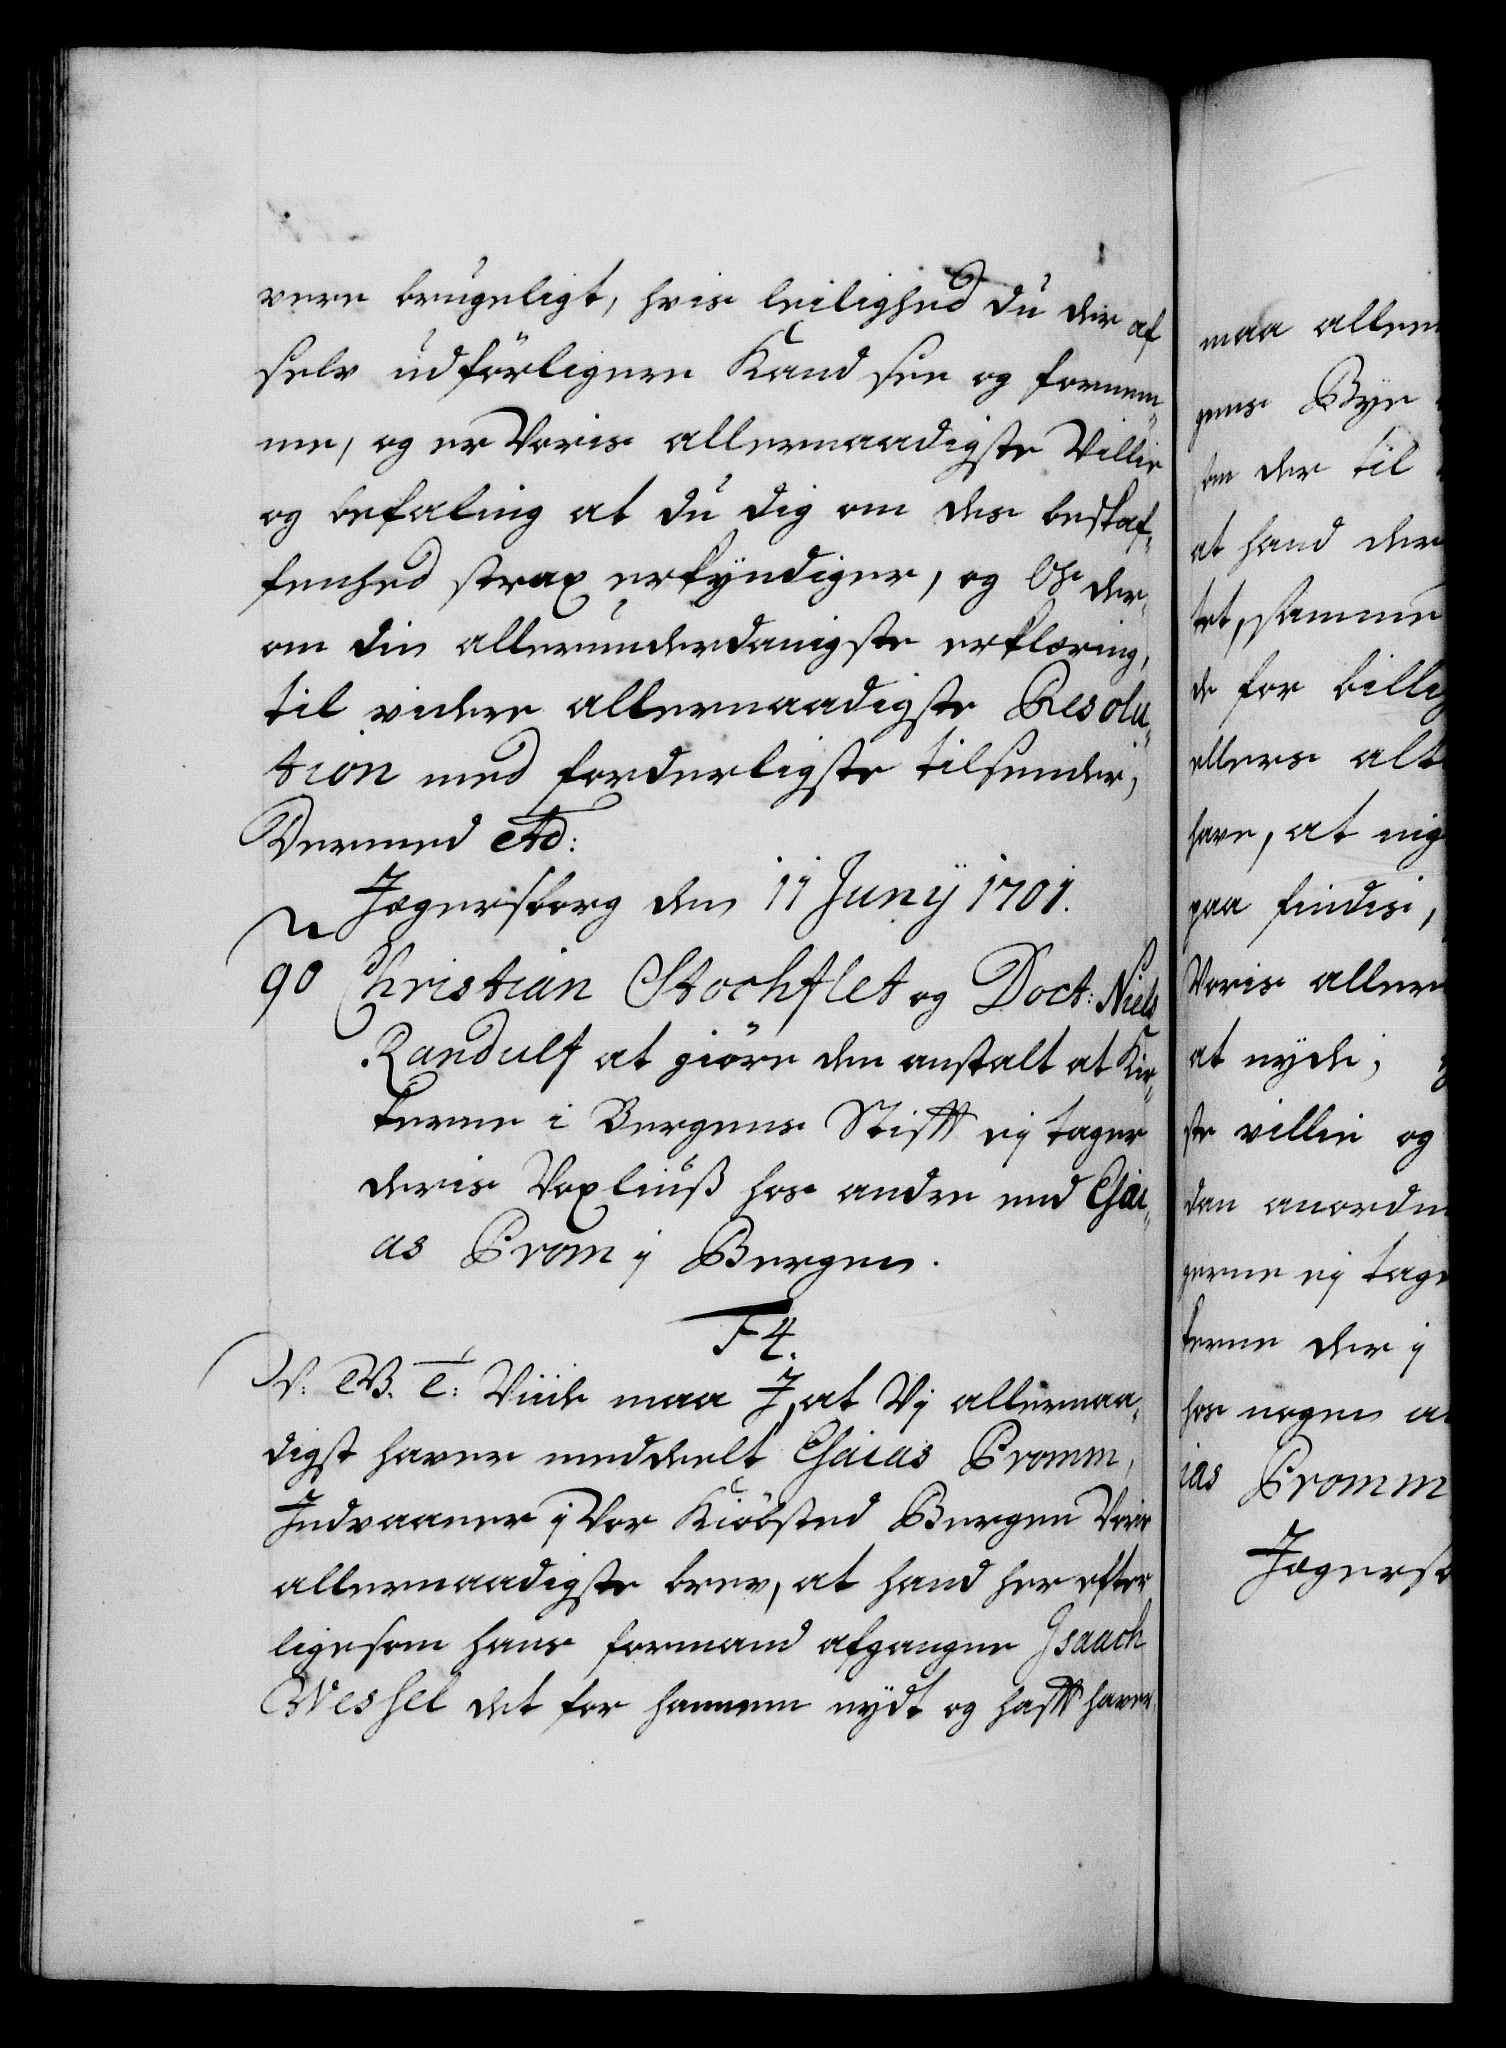 være brugeligt, hvis leilighed du der af
selv udförligere Kand see og fornem„
me, og er Voris allernaadigste Villie
og befaling at du dig om des beskaf„
fenhed strax erkyndiger, og Os der„
om din allerunderdanigste erklæring,
til videre allernaadigste Resolu„
tion med forderligste tilsender,
Dermed etc:
Jægersborg den 11 Junij 1701.
90 Christian Stochflet og Doct: Niels
Randulf at giöre den anstalt at Kir„
kerne i Bergens Stifft ej tager
deris Voxliuß hos andre end Esai„
as Prom i Bergen.
F4.
V: G: T: Viide maa I, at Vj allernaa„
digst haver meddeelt Esaias Promm,
Indvaaner i Vor Kiöbsted Bergen Voris
allernaadigste brev, at hand her efter
ligesom hans formand afgangne Isaach
Wessel det for hannem nydt og hafft haver,
maa allern
gens Bye
som der til
at hand der
tet, samme
de for billig
ellers alt
have, at nig
paa findis,
Voris aller
at nyde,
ste villie og
dan anordn
gerne ej tag
kerne der i
hos nogen a
ias Promm
Jægersb